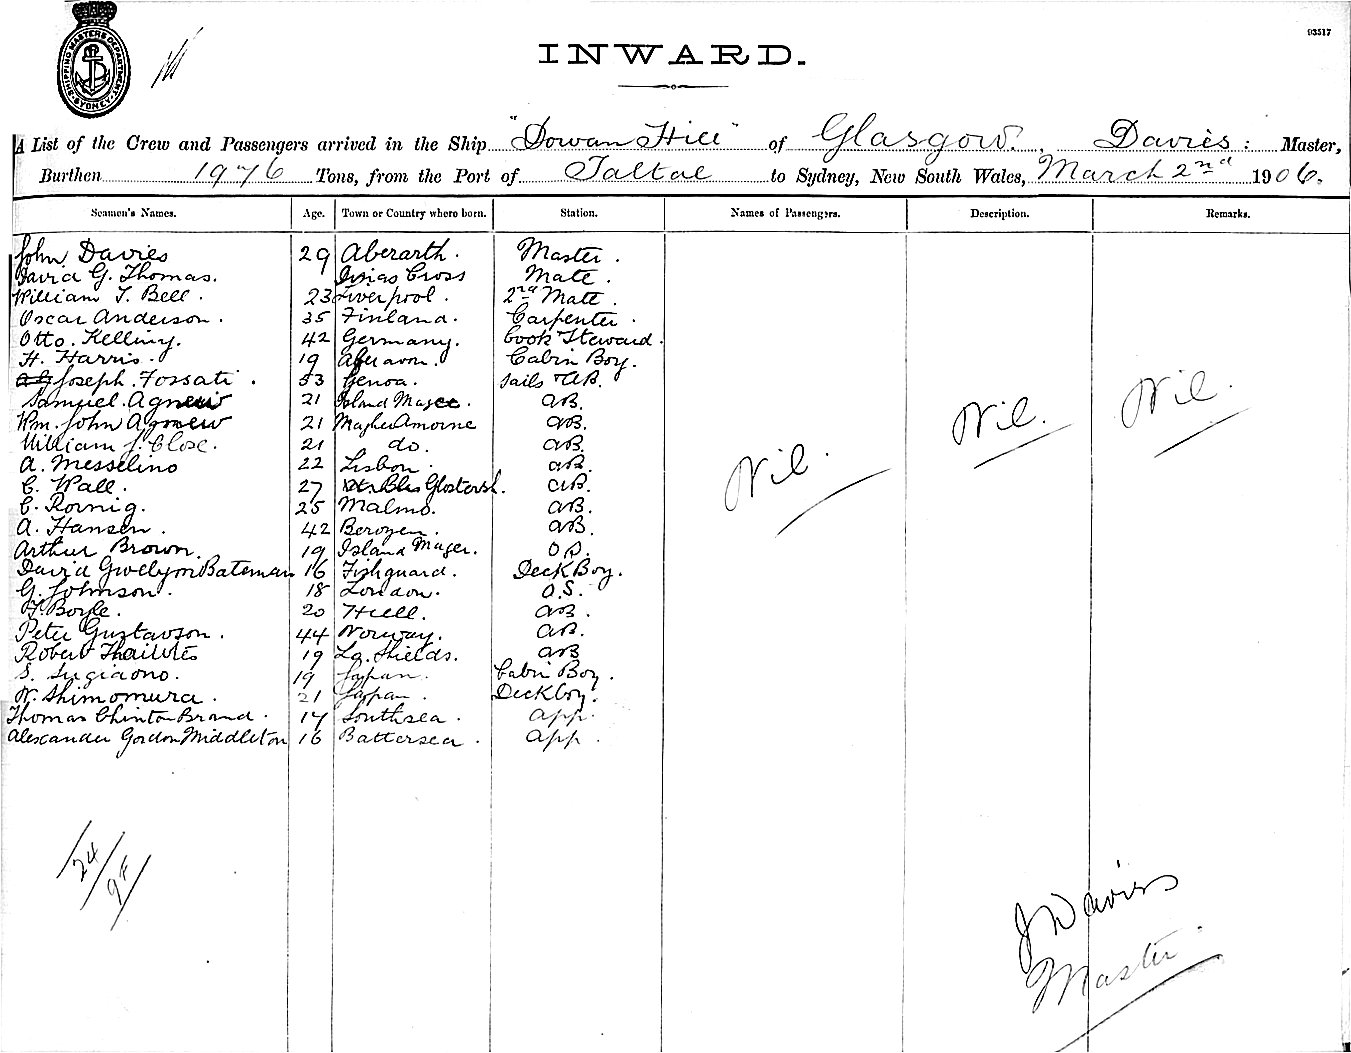 SHIPPING MASTERS DEPARTMENT
SYDNEY
93517
INWARD.
A List of the Crew and Passengers arrived in the Ship "Dowan Hill" of Glasgow. Davies: Master,
Burthen 1976 Tons, from the Port of Taltal to Sydney, New South Wales, March 2nd 1906.
Seamen's Names. Age. Town or Country where born. Station. Names of Passengers. Description. Remarks.
John Davies 29 Aberarth. Master.
David G. Thomas. Cross Mate.
William T. Bell. 23 Liverpool. 2nd Mate.
Oscar Anderson. 35 Finland. Carpenter.
Otto. Kelling. 42 Germany. Cook Steward.
H. Harris. 19 Aberavon. Cabin Boy.
Joseph. Fossati. 53 Genoa. Sails & AB.
Samuel. Agnew 21 Island Magee. AB.
Wm. John Agnew 21 MagherAmorne AB.
William J. Close. 21 do. AB.
A. Messelino 22 Lisbon. AB.
C. Wall. 27 Glostersh. AB.
C. Rornig. 25 Malmo. AB.
A. Hansen. 42 Bergen. AB.
Arthur Brown. 19 Island Magee. OS.
David Gwelym Bateman 16 Fishguard. Deck Boy.
G. Johnson. 18 London. O.S.
T. Boyle. 20 Hull. AB.
Peter Gustavson. 44 Norway. AB.
Robert 19 Shields. AB
S. Sugiaono. 19 Japan. Cabin Boy.
N. Shimomura. 21 Japan. Deck Boy.
Thomas Clinton Brand. 17 Southsea. App.
Alexander Gordon Middleton 16 Battersea. App.
Nil. Nil. Nil.
24
J Davies
Master.